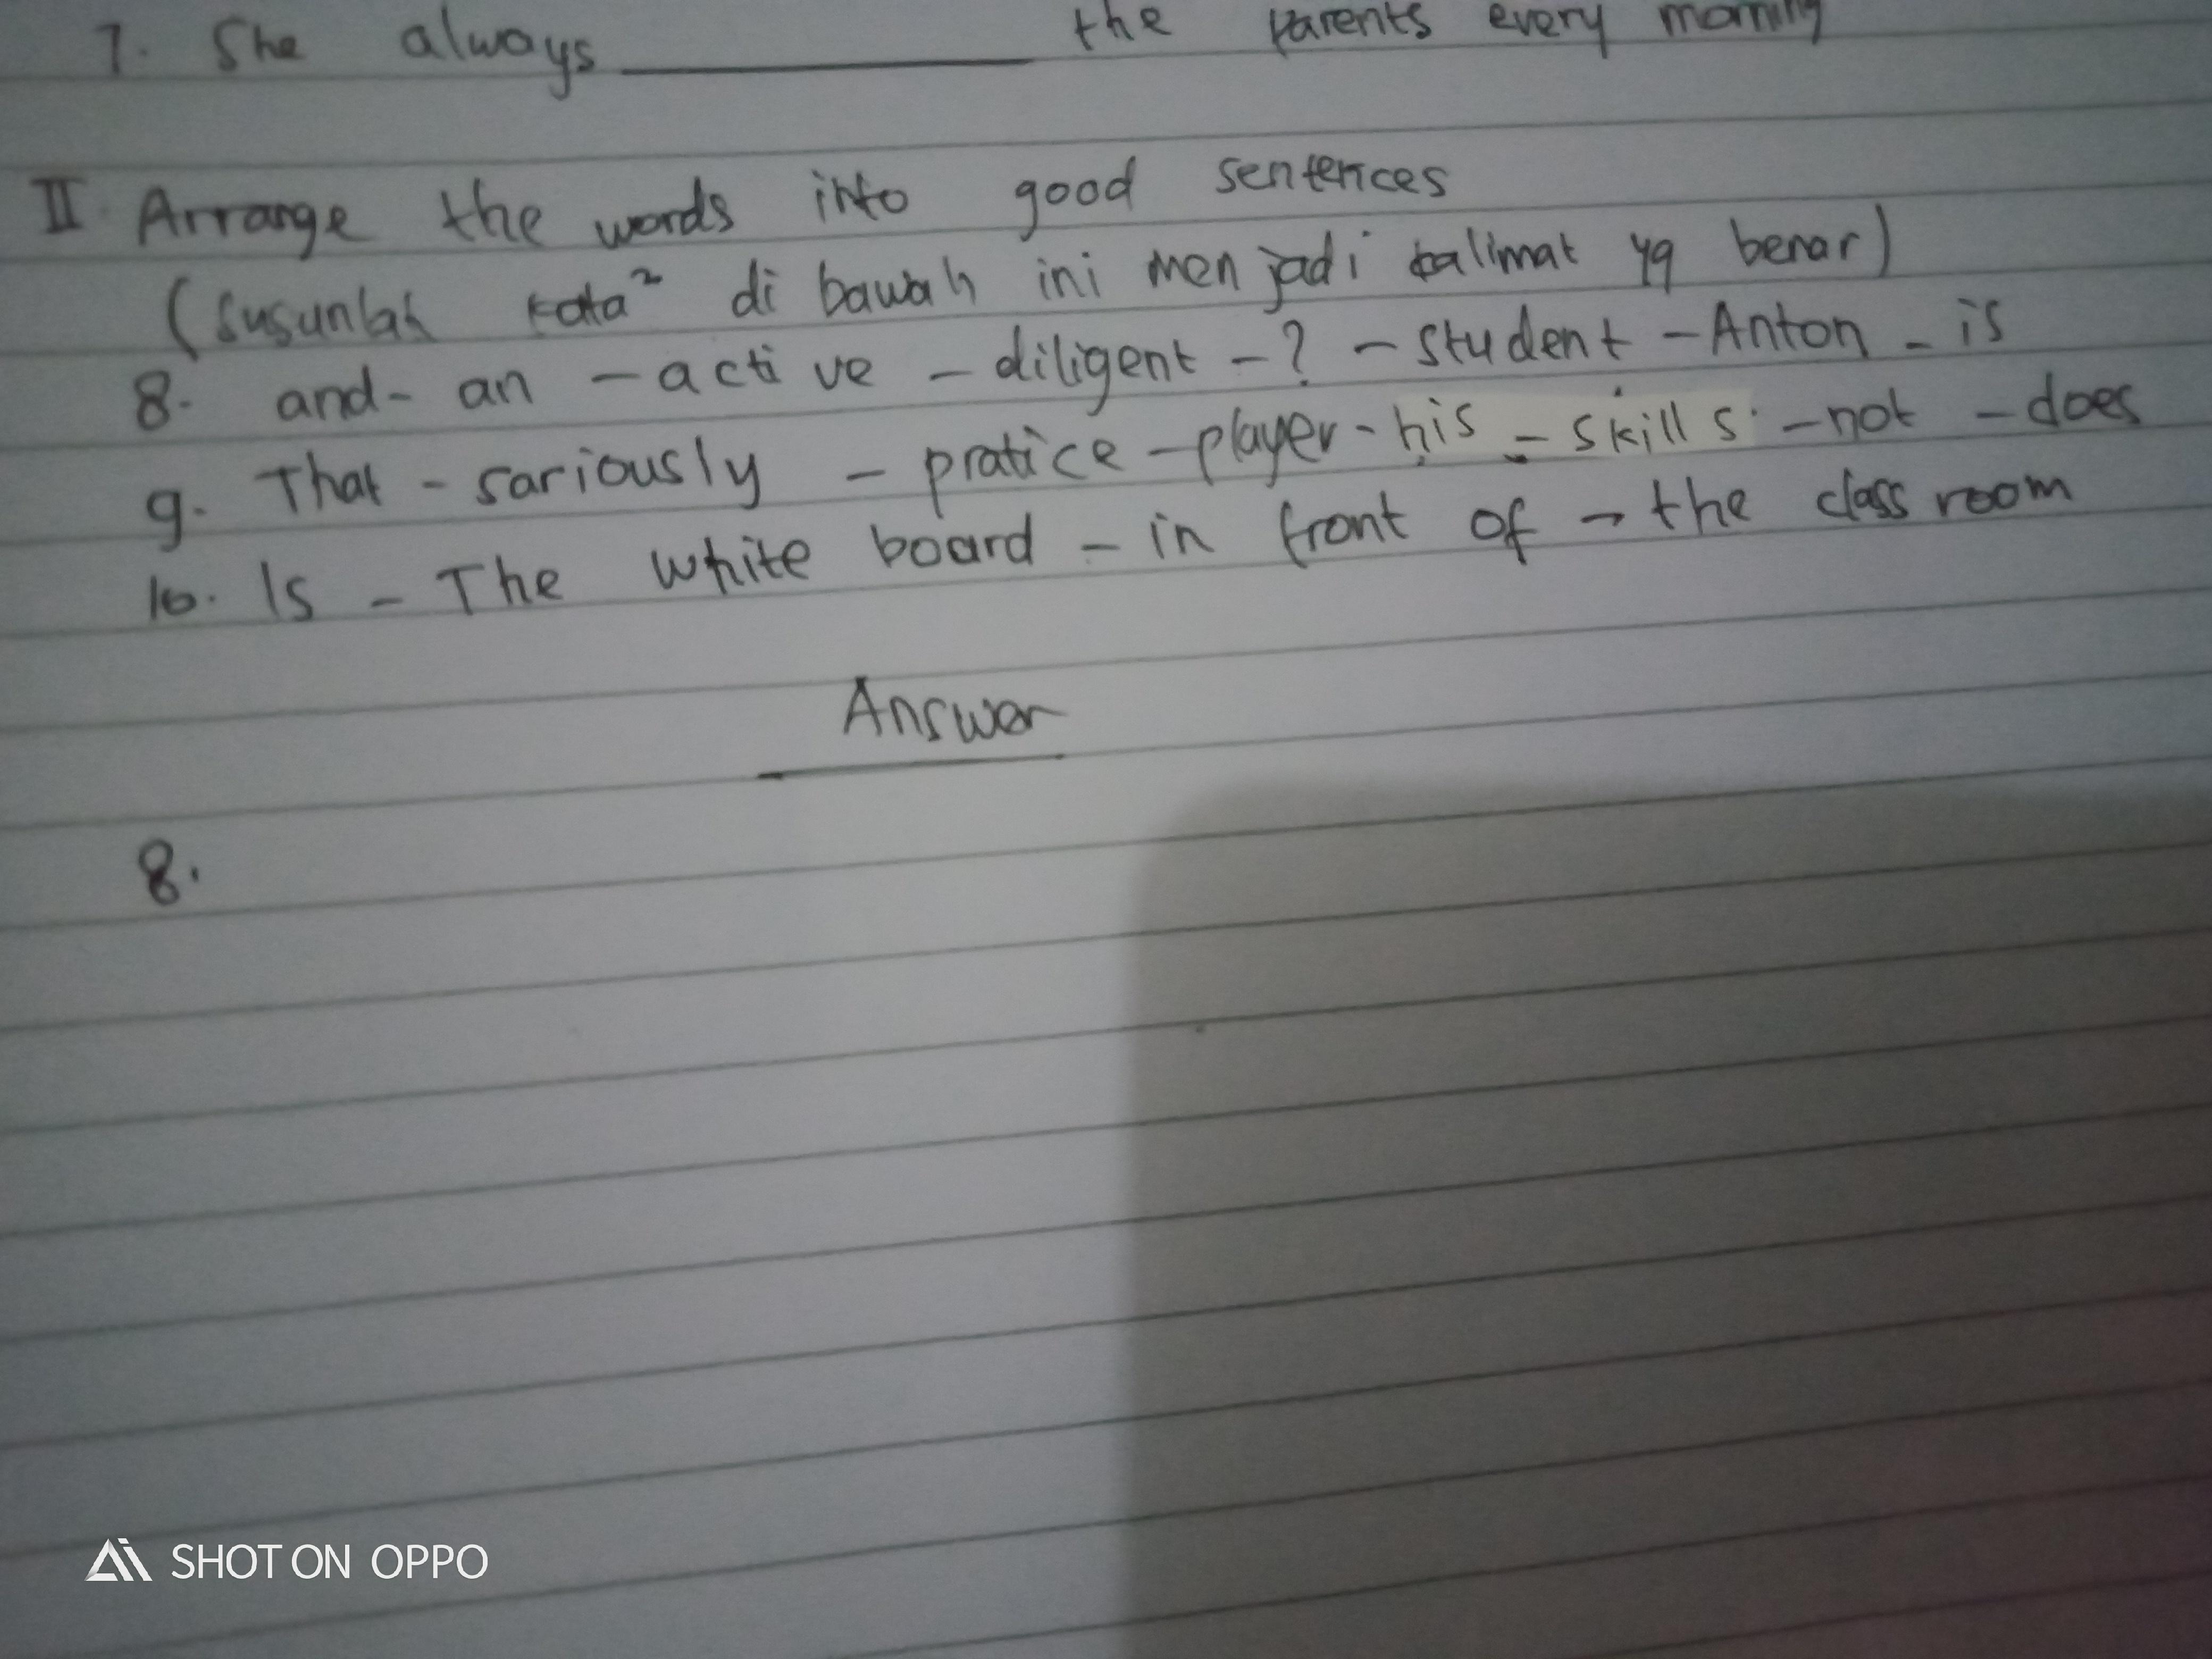 7. She always ________ the parents every morning
II. Arrange the words into good sentences
(susunlah kata² di bawah ini menjadi kalimat yg benar)
8. and - an - active - diligent - ? - student - Anton - is
9. That - sariously - pratice - player - his - skills - not - does
10. Is - The white board - in front of - the class room
Answer
8.
Ai SHOT ON OPPO